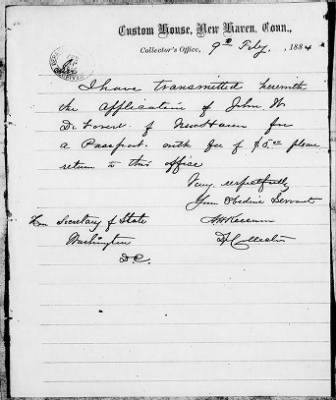 Custom House, New Haven, Conn.,
Collector's Office, 9th Feby, 1884
I have transmitted herewith
the application of John W
De Forest of New Haven for
a Passport with fee of $5.00 please
return to this office
Very respectfully
Your Obedient Servant
Hon Secretary of State
Washington
D.C.
Collector